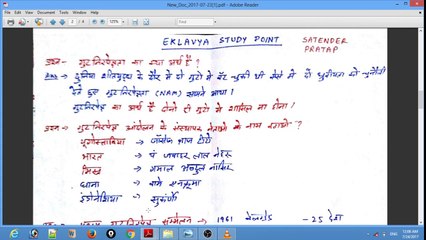 New_Doc_2017-07-23(1).pdf - Adobe Reader
File Edit View Window Help
EKLAVYA STUDY POINT
SATENDER PRATAP
प्रश्न - गुटनिरपेक्षता का क्या अर्थ है?
Ans - दुनिया शीतयुद्ध के दौर में दो गुटों में बंट चुकी थी ऐसे में दो ध्रुवीयता को चुनौती
देने हुए गुटनिरपेक्षता (NAM) सामने आया।
गुटनिरपेक्ष का अर्थ है दोनो ही गुटो में शामिल ना होना।
प्रश्न - गुटनिरपेक्ष आंदोलन के संस्थापक नेताओं के नाम बताओ?
यूगोस्लाविया → जोसेफ ब्राज टीटो
भारत → पं जवाहर लाल नेहरू
मिस्र → गमाल अब्दुल नासिर
घाना → वामे एनक्रूमा
इंडोनेशिया → सुकर्णो
सम्मेलन → 1961 - 25 देश
12:06 AM
7/24/2017